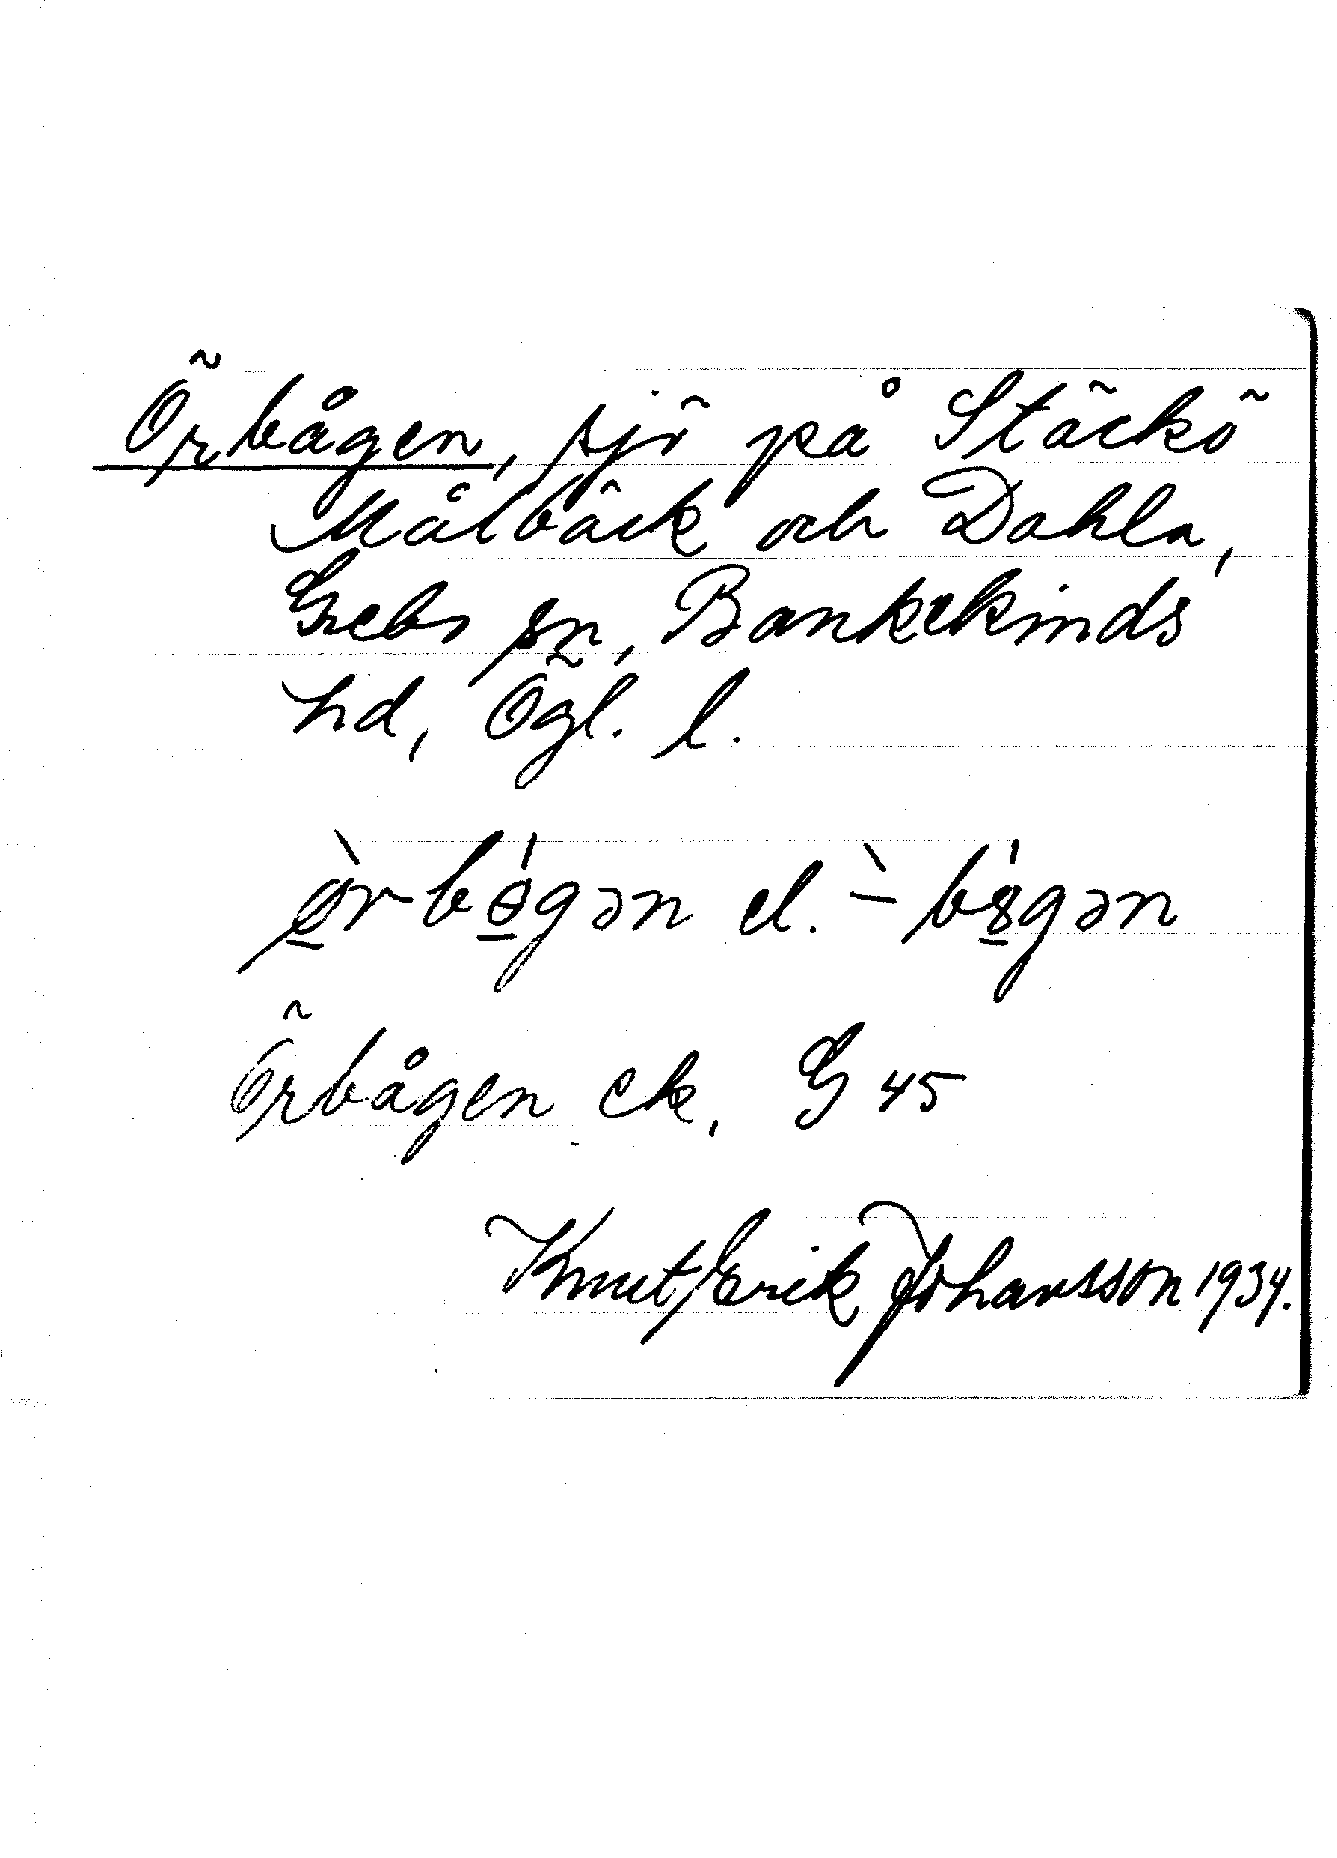 Örbågen, sjö på Stäckö
Målbäck och Dahla,
Grebo sn, Bankekinds
hd, Ögl. l.
ø̀r-bǿgən el. ̀- bǵən
Örbågen ek. G 45
Knut/Erik Johansson 1934.